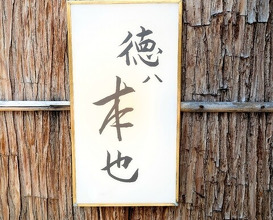 徳八本也